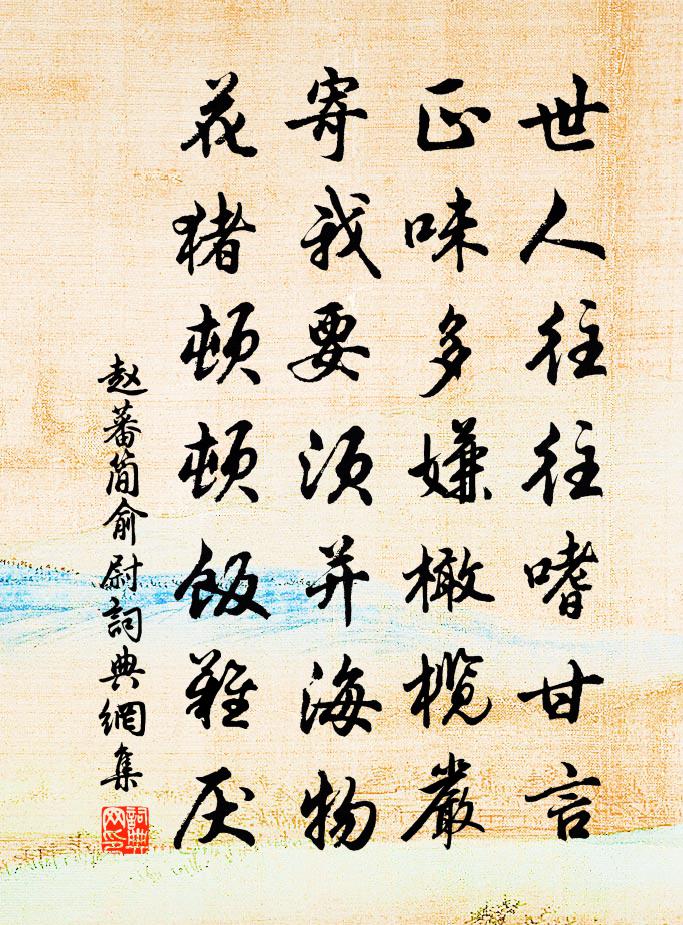 世人往往嗜甘言
正味多嫌橄榄嚴
寄我要须并海物
花猪顿顿飯難厌
赵蕃简俞尉詞典網集
詞典网印